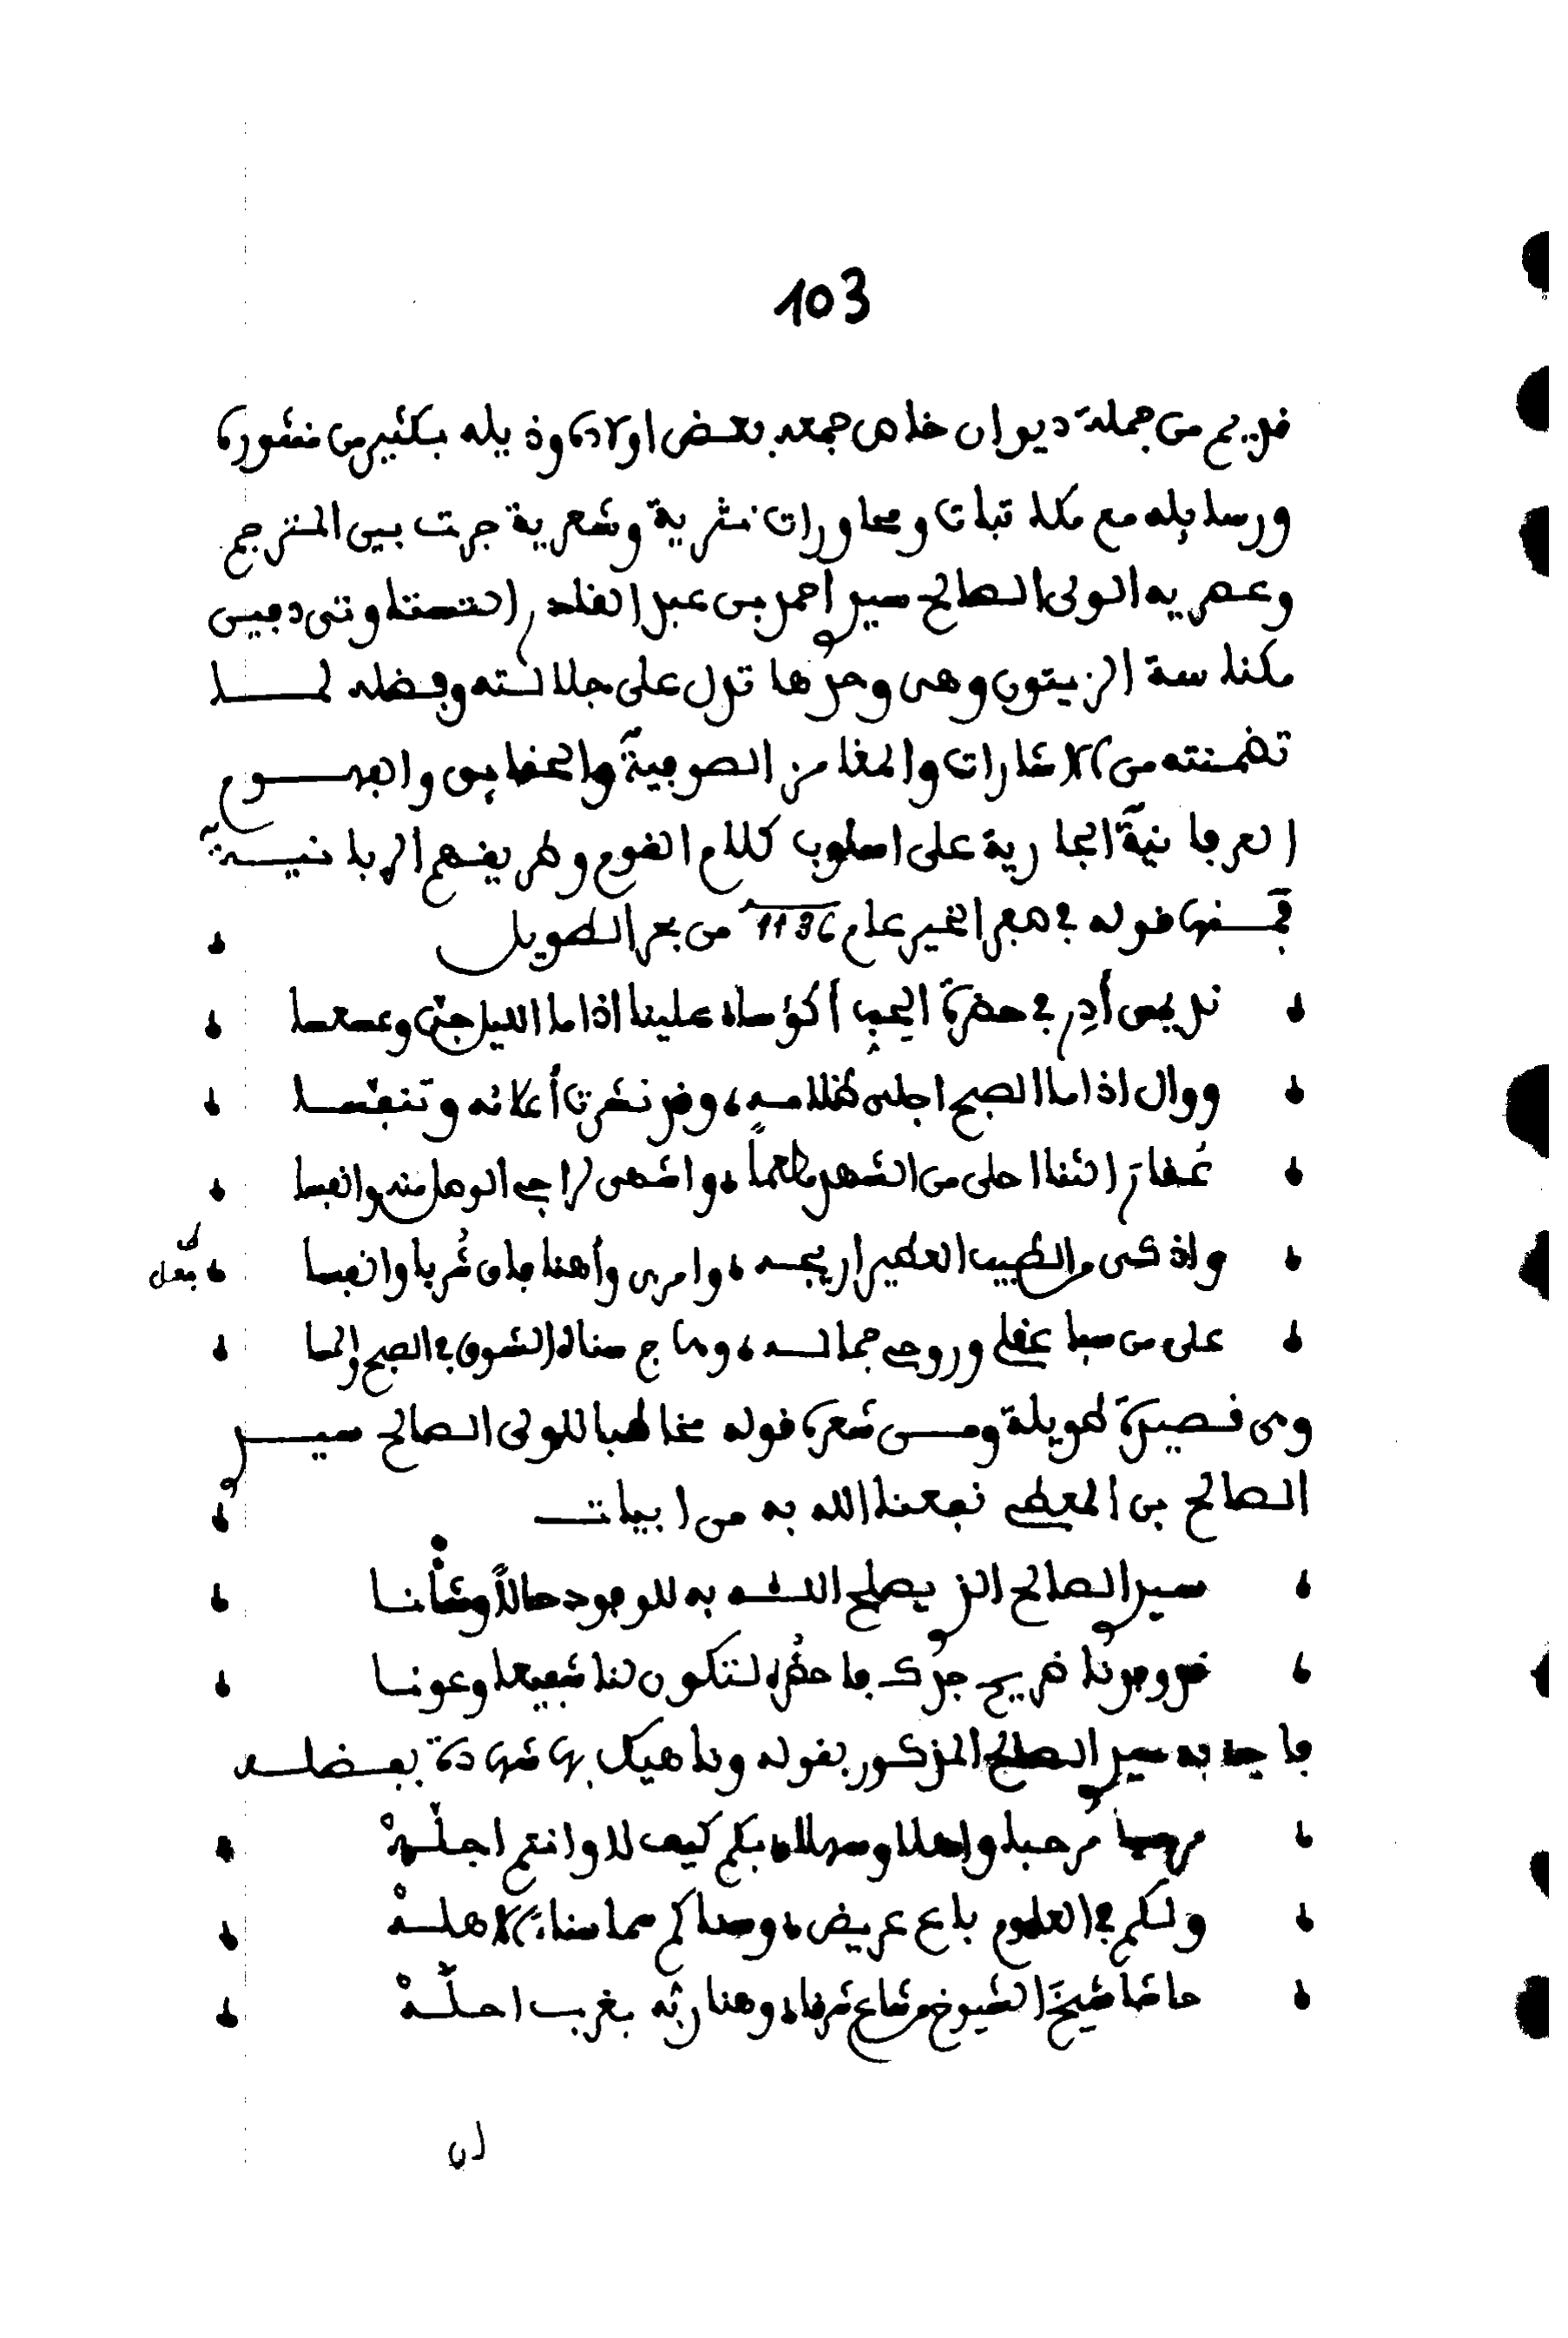 103
قديم من جملة ديوان خاص جمعه بعض اولاده وذيله بكثير من منثوره
ورسايله مع مكاتبات ومحاورات نثرية وشعرية جرت بين المترجم
وعصريه الولى الصالح سيدى أحمد بن عبد القادر التستاوتى دفين
مكناسة الزيتون وهى وحدها تدل على جلالته وفضله لما
تضمنته من الاشارات والمغامز الصوفية والحقايق والفهوم
العرفانية الجارية على اسلوب كلام القوم ولهم يفهم الربانية
فمنها قوله فى هجر الخير عام 1136 من بحر الطويل
نديمى أدر فى حضرة الحب أكؤسا، علينا اذا ما الليل جن وعسعسا
ووال اذا ما الصبح اجلى ظلامه، وقد نشرت أعلامه وتنفسا
عقار الثنا احلى من الشهد مطعماً، واشهى لراجى الوصل منه وانفسا
واذكى من الطيب العطير اريجه، وامرى وأهنا فان قُربا وانفسا
على من سبا عقلى وروحى جماله، وهاج سناه الشوق فى الصبح والمسا
وهى قصيدة طويلة ومن شعره قوله مخاطبا للولى الصالح سيدى
الصالح بن المعطى نفعنا الله به من ابيات
سيدى الصالح الذى يصلح اللــه به للوجود حالاً وشأنا
قد وفدنا ضريح جدك فاحضر، لتكون لنا شفيعا وعونا
فاجابه سيدى الصالح المذكور بقوله وناهيك بها شهادة بفضله
مرحبا مرحبا واهلا وسهلا، بكم كيف لا وانتم اجلّهْ
ولكم فى العلوم باع عريض، وسناكم سما سناء الاهلهْ
حاشا شيخ الشيوخ من شاع شرقا، وهنا رثه بغرب احلّهْ